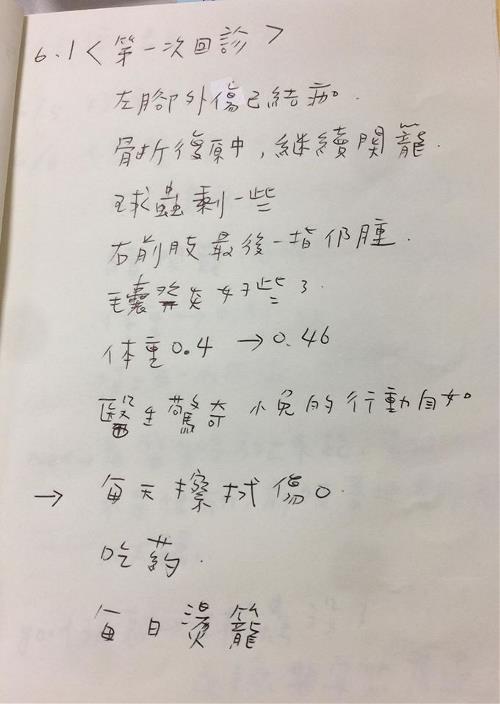 6.1<第一次回診>
左腳外傷已結痂.
骨折復原中,繼續關籠.
球蟲剩一些
右前肢最後一指仍腫.
毛囊發炎好些了.
体重0.4 →0.46
醫生驚奇 小兔的行動自如
→ 每天擦拭傷口.
吃药.
每日燙籠